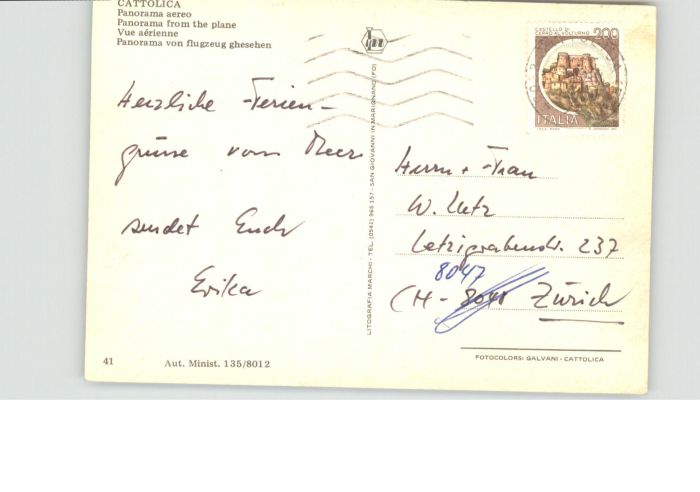 CATTOLICA
Panorama aereo
Panorama from the plane
Vue aérienne
Panorama von flugzeug ghesehen
CASTELLO DI
CERRO AL VOLTURNO 200
ITALIA
Herzliche Ferien-
grüsse vom Meer
sendet Euch
Erika
LITOGRAFIA MARCHI - TEL. (0541) 966 157 - SAN GIOVANNI IN MARIGNANO (FO)
Herrn + Frau
W. Lutz
Letzigrabenstr. 237
8047
CH - Zürich
41
Aut. Minist. 135/8012
FOTOCOLORS: GALVANI - CATTOLICA